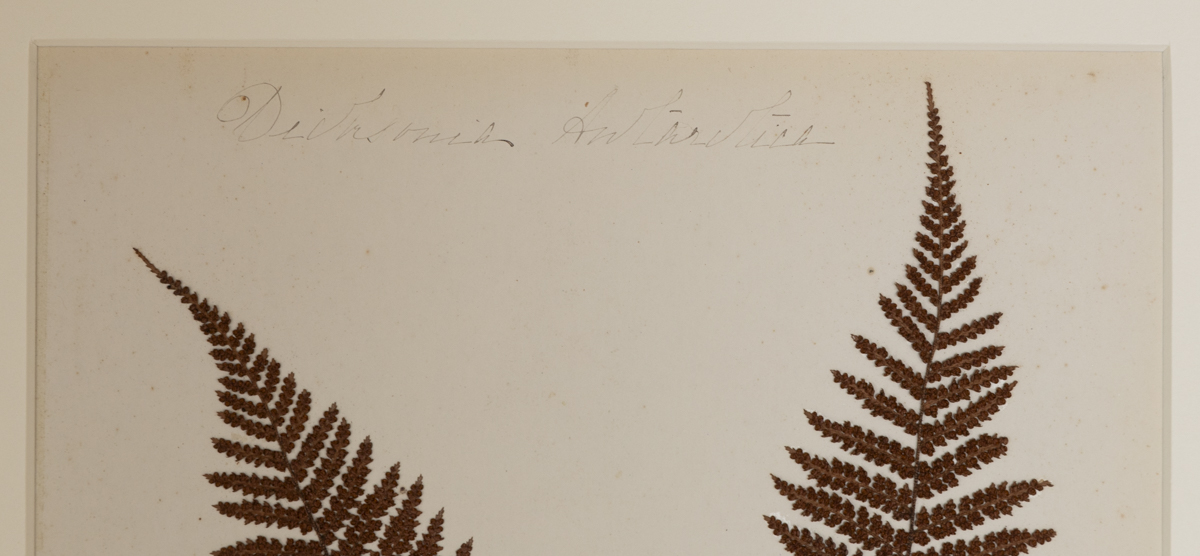 Dicksonia Antarctica